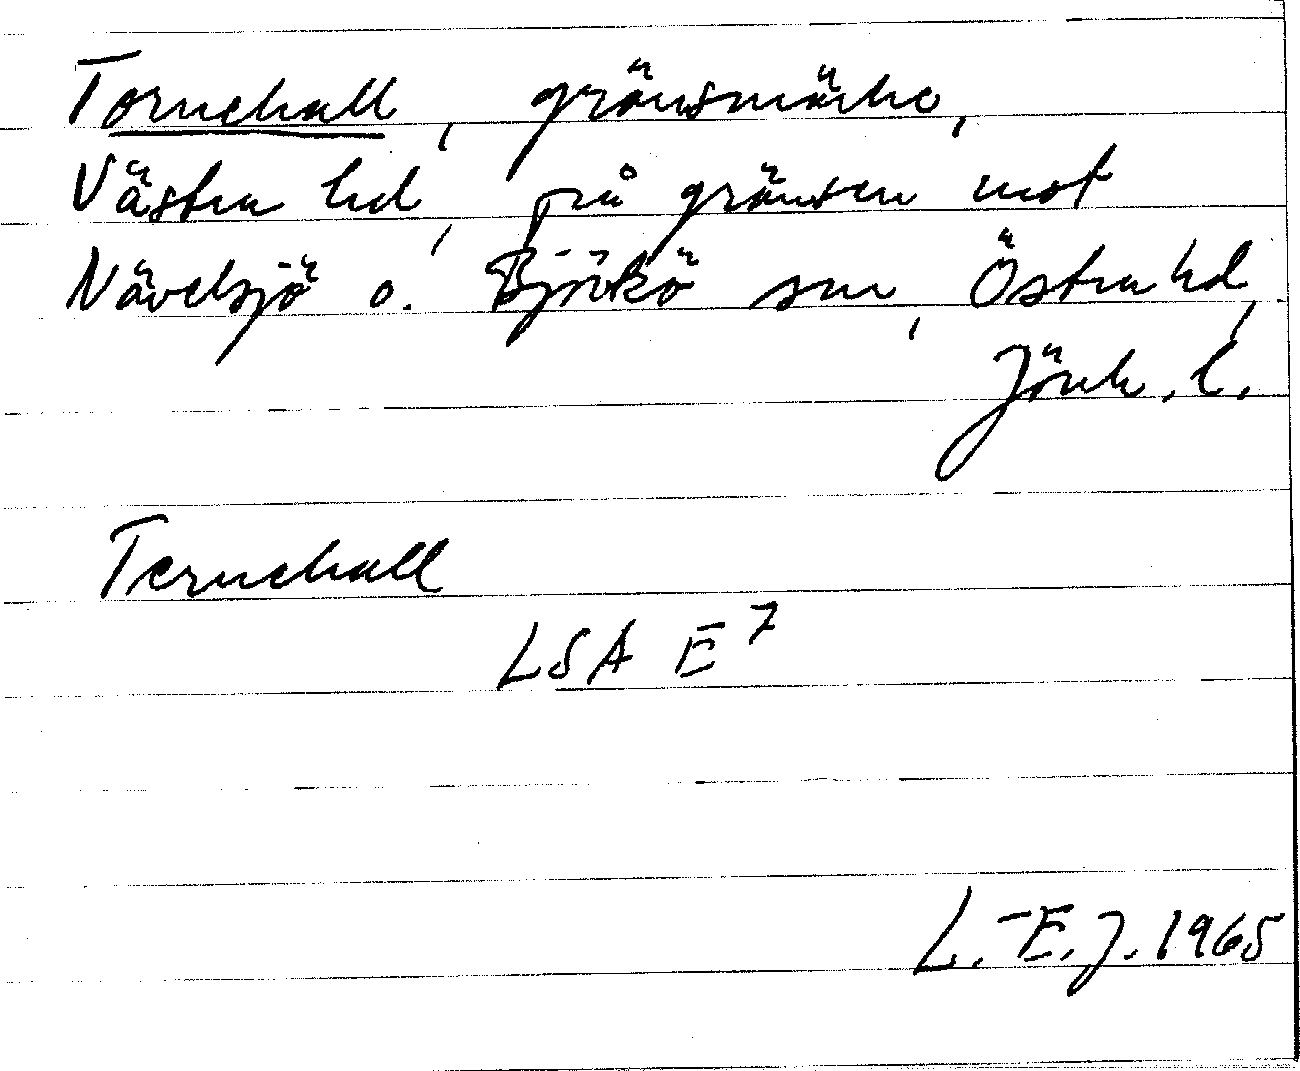 Tornehall, gränsmärke,
Västra hd, på gränsen mot
Nävelsjö o. Björkö snr, Östra hd,
Jönk. l.
Ternehall
LSA E7
L.-E. J. 1965